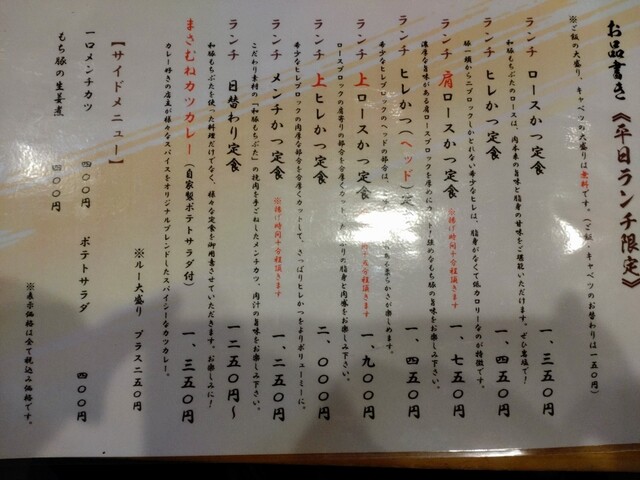 お品書き《平日ランチ限定》
※ご飯の大盛り、キャベツの大盛りは無料です。（ご飯、キャベツのお替わりは一五〇円）
ランチ ロースかつ定食 一、三五〇円
和豚もちぶたのロースは、肉本来の旨味と脂身の甘味をご堪能いただけます。ぜひ塩で！
ランチ ヒレかつ定食 一、四五〇円
豚一頭から二ブロックしかとれない希少なヒレは、脂身がなくて低カロリーなのが特徴です。
ランチ 肩ロースかつ定食 ※揚げ時間十分程頂きます 一、七五〇円
濃厚な旨味がある肩ロースブロックを厚めにカット！強めなもち豚の旨味をお楽しみ下さい。
ランチ ヒレかつ（ヘッド）定 一、四五〇円
希少なヒレブロックのヘッドの部分は、 柔らかさが楽しめます。
ランチ 上ロースかつ定食 十分程頂きます 一、九〇〇円
ロースブロックの肩寄りの部分を分厚くカット 脂身と肉感をお楽しみ下さい。
ランチ 上ヒレかつ定食 二、〇〇〇円
希少なヒレブロックの肉厚な部分を分厚くカットして、さっぱりヒレかつをよりボリューミーに。
ランチ メンチかつ定食 ※揚げ時間十分程頂きます 一、二五〇円
こだわり素材の「和豚もちぶた」の挽肉を手ごねしたメンチカツ、肉汁の旨味をお楽しみ下さい。
ランチ 日替わり定食 一二五〇円～
和豚もちぶたを使った料理だけでなく、様々な定食を御用意させていただきます。日替わりでお楽しみに！
まさむねカツカレー（自家製ポテトサラダ付） 一、三五〇円
カレー好きの店主が様々なスパイスをオリジナルブレンドしたスパイシーなカツカレー。
※ルー大盛り プラス二五〇円
【サイドメニュー】
一口メンチカツ 四〇〇円 ポテトサラダ 四〇〇円
もち豚の生姜煮 四〇〇円
※表示価格は全て税込み価格です。